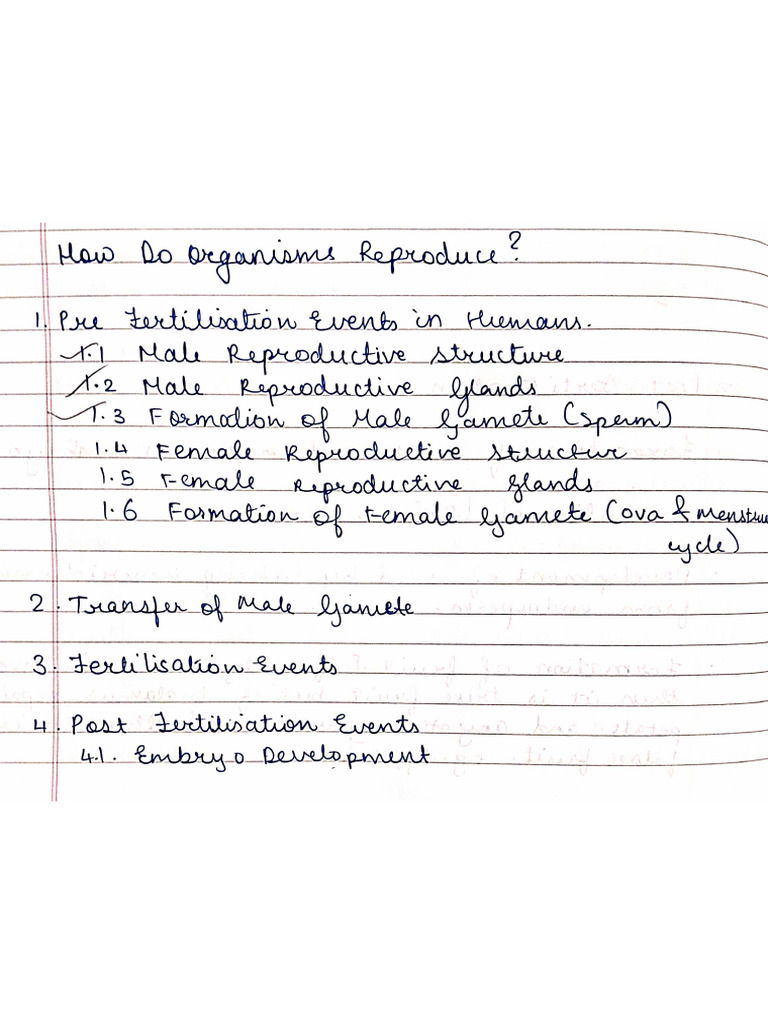 How Do Organisms Reproduce?
1. Pre Fertilisation Events in Humans.
1.1 Male Reproductive Structure
1.2 Male Reproductive Glands
1.3 Formation of Male Gamete (Sperm)
1.4 Female Reproductive Structur
1.5 Female Reproductive Glands
1.6 Formation of Female Gamete (ova & menstrue
cycle)
2. Transfer of Male Gamete
3. Fertilisation Events
4. Post Fertilisation Events
4.1. Embryo Development